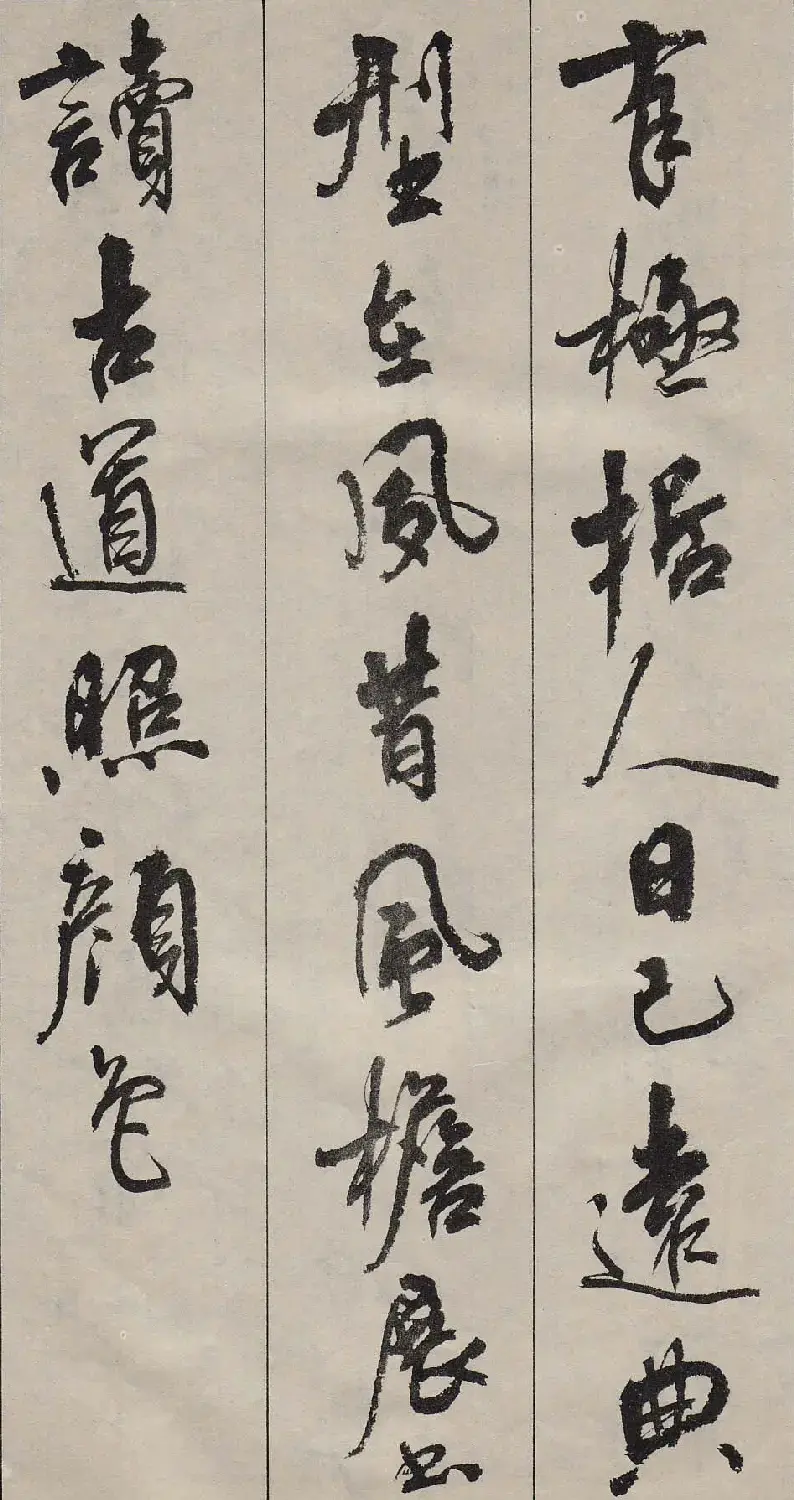 有極哲人日已遠典
型在夙昔風檐展書
讀古道照顏色